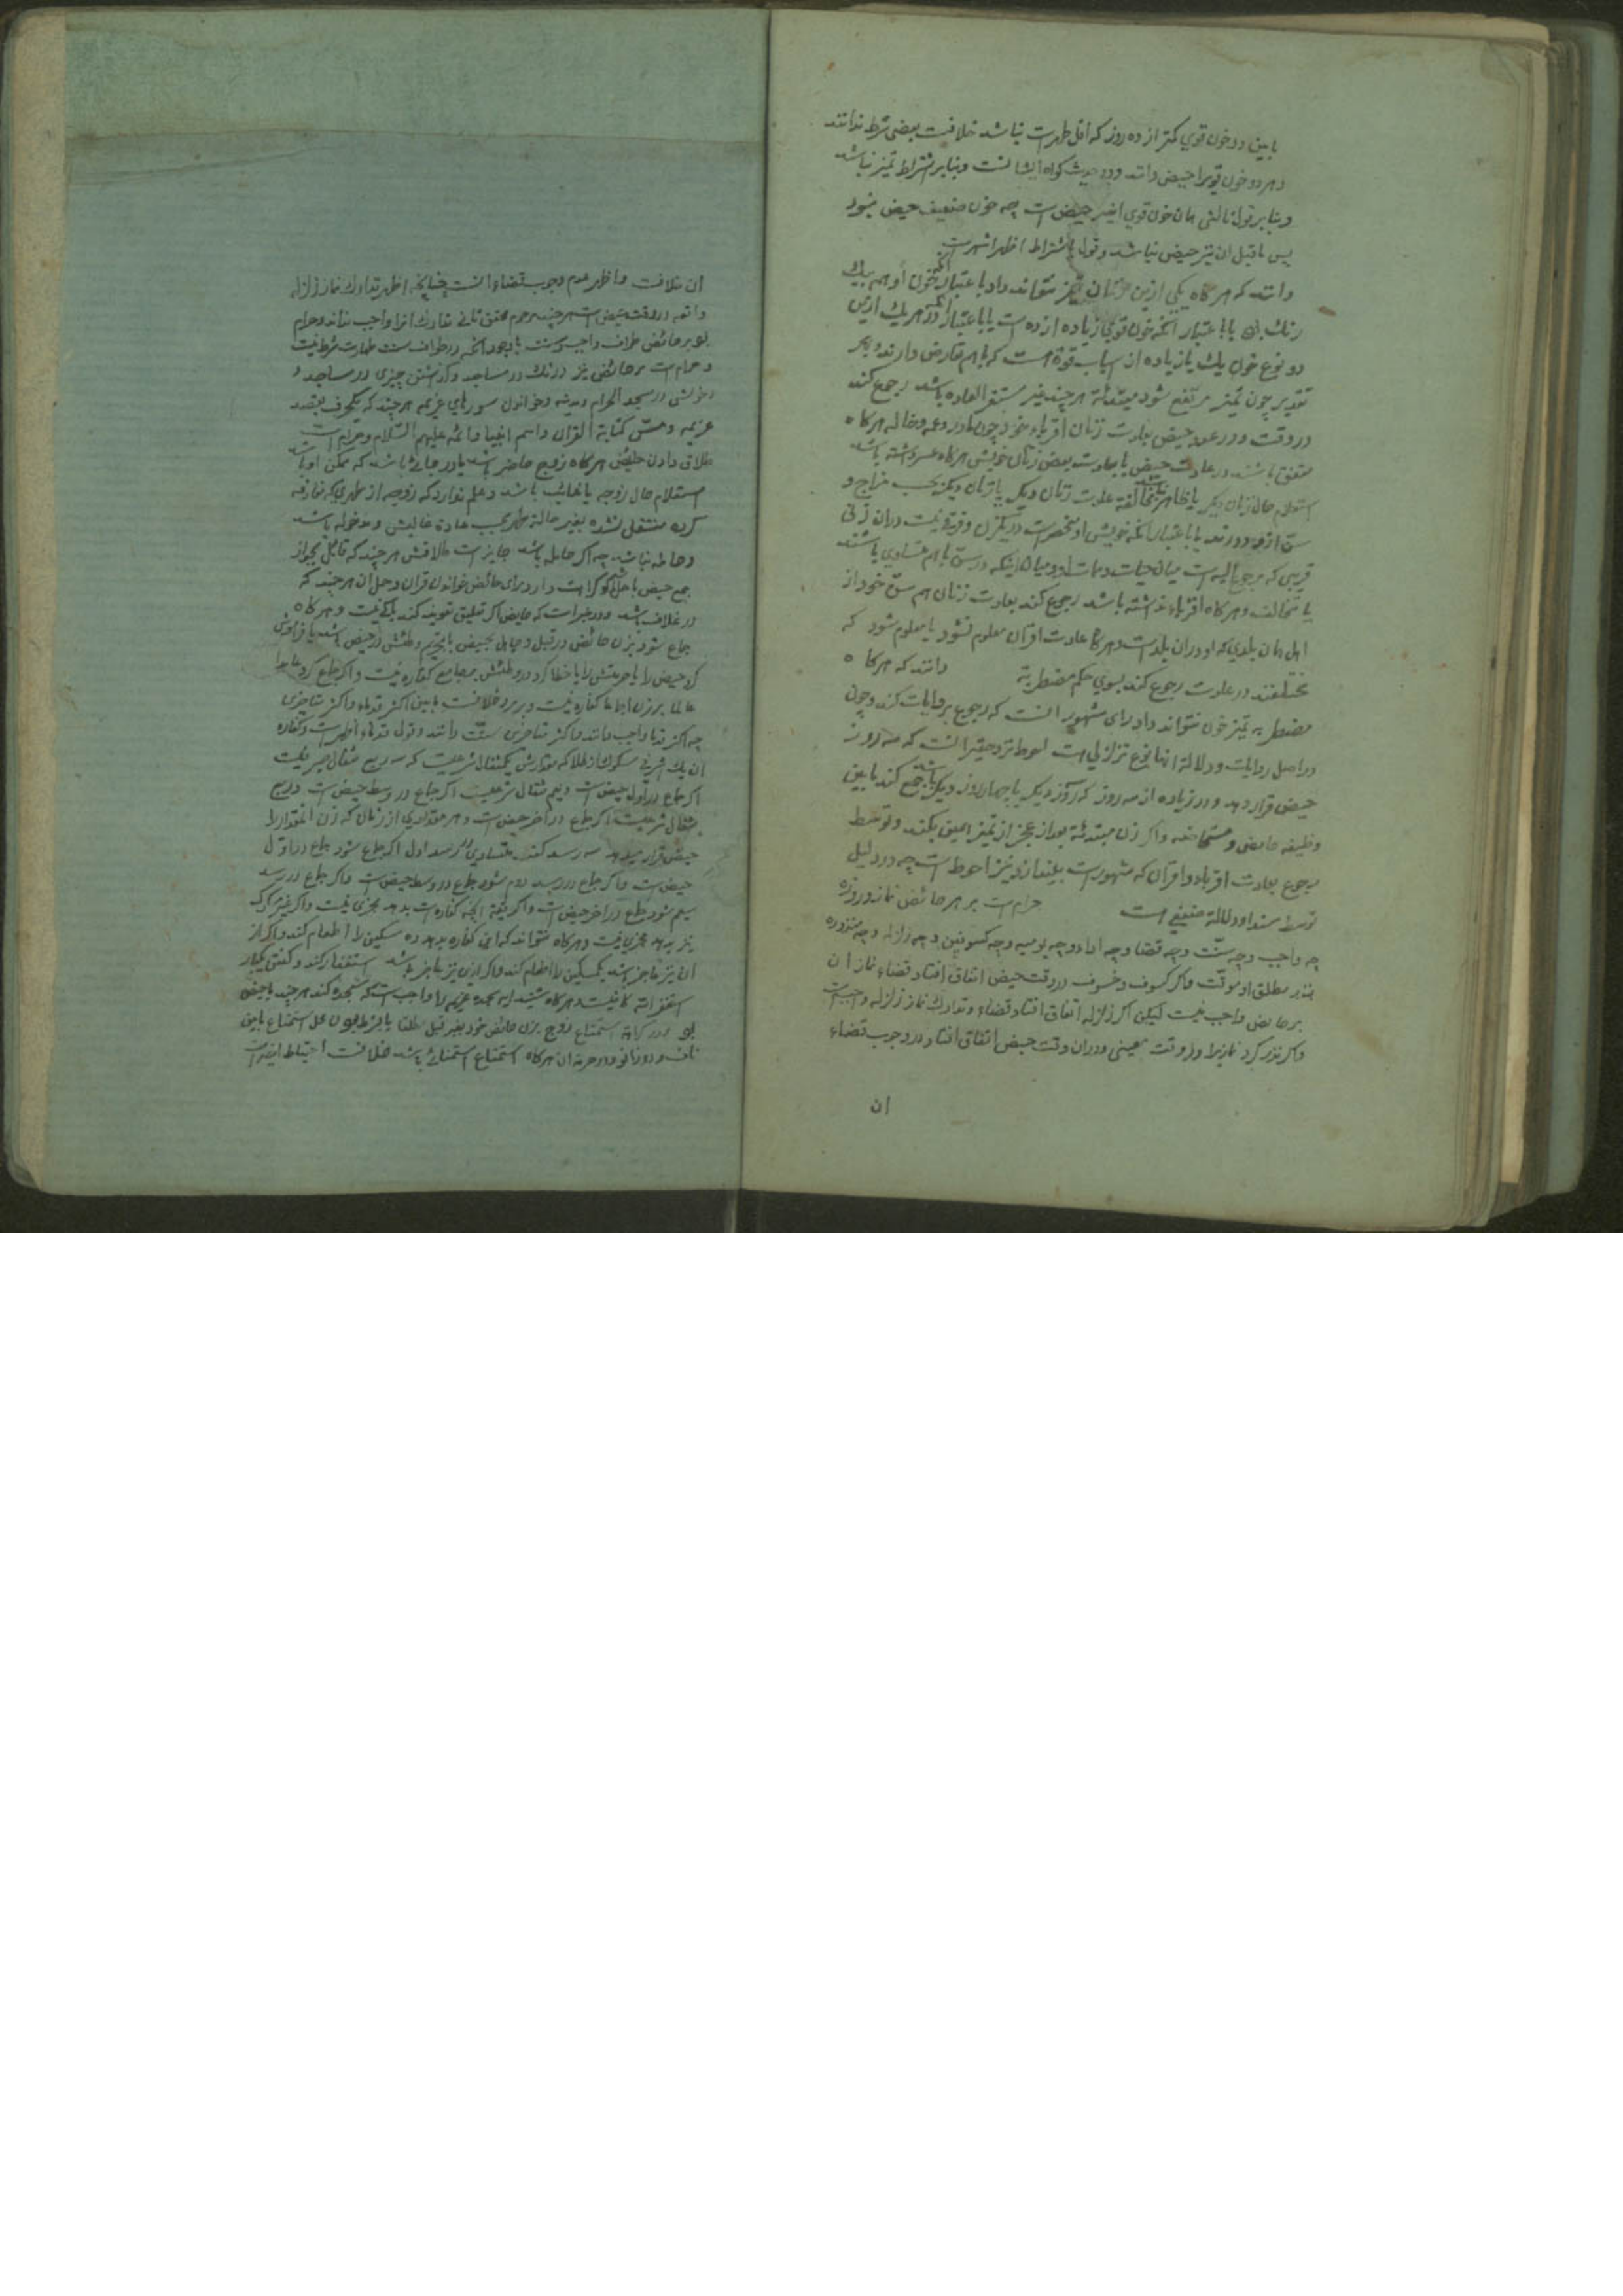 ما بین دو خون قوي کمتر از ده روز که اقل طهرست نباشد خلافست بعضی شرط ندانند
و هر دو خون قویرا حیض دانند و دو حدیث کواه ایشانست و بنابر اشتراط تمیز نباشد
و بنابر قول ثالثی همان خون قوي اخیر حیض است چه خون ضعیف حیض نبود
پس ماقبل ان نیز حیض نباشد و قول باشتراط اظهر اشهرست
دانند که هر کاه یکي ازین زنان تمیز نتواند داد یا باعتبار آنکه خون او همه بیك
رنك بود یا باعتبار آنکه خون قوي زیاده از ده است یا باعتبار آنکه در هر یك ازین
دو نوع خون یك یا زیاده از اسباب قوة است که با هم تعارض دارند و بهر
تقدیر چون تمیز مرتفع شود مبتدئة هر چند غیر مستقر العاده باشد رجوع کند
در وقت و در عدد حیض بعادت زنان اقرباء خود چون مادر و عمه و خاله هر کاه
متفق باشند در عادت حیض یا بعادت بعض زنان خویش هر کاه عسر داشته باشد
استعلام حال زنان دیکر یا ظاهر نباشد مخالفة عادت زنان دیکر با زنان دیکر بحسب مزاج و
سن ازو دورند یا باعتبار آنکه خویش او منحصرست در یکزن و فرقی نیست در ان زنی
قریبی که مرجع الیه است میان حیات و ممات او و میان اینکه در سن با هم متساوي باشند
یا مخالف و هر کاه اقرباء نداشته باشد رجوع کند بعادت زنان هم سن خود از
اهل همان بلدي که او در ان بلدست و هر کاه عادت اقران معلوم نشود یا معلوم شود که
مختلفند در عادت رجوع کند بسوي حکم مضطربة دانند که هر کاه
مضطربه تمیز خون نتواند داد رای مشهور انست که رجوع بروایات کند و چون
در اصل روایات و دلالة انها نوع تزلزلي است احوط نزد حقیر انست که سه روز
حیض قرار دهد و در زیاده از سه روز که روز دیکر یا چهار روز دیکر باشد جمع کند ما بین
وظیفه حایض و مستحاضه و اکر زن مبتدئة بعد از عجز از تمیز همین بکند و توسط
رجوع بعادت اقرباء و اقران که مشهورست بیندازد نیز احوط است چه در دلیل
توسط سندا و دلالة ضعفي است حرام است بر هر حائض نماز و روزه
چه واجب و چه سنت و چه قضا و چه ادا و چه یومیه و چه کسوفین و چه زلزله و چه منذوره
بنذر مطلق او موقت و اکر کسوف و خسوف در وقت حیض اتفاق افتاد قضاء نماز ان
بر حایض واجب نیست لیکن اکر زلزله اتفاق افتاد قضاء و تدارك نماز زلزله واجبست
و اکر نذر کرد نمازیرا در وقت معینی و در ان وقت حیض اتفاق افتاد در وجوب قضاء
ان
ان خلافست و اظهر عدم وجوب قضاء انست چنانچه اظهر تدارك نماز زلزله
واقعه در وقت حیض است هر چند مرحوم محقق ثانی تدارك انرا واجب نداند و حرام
بود بر حائض طواف واجب و سنت با وجود آنکه در طواف سنت طهارت شرط نیست
و حرام است بر حائض نیز درنك در مساجد و کذاشتن چیزي در مساجد و
دخولش در مسجد الحرام و مدینه و خواندن سورهاي عزیمه هر چند که یکحرف بقصد
عزیمه و مس کتابة القران و اسم انبیا و ائمه علیهم السلام و حرام است
طلاق دادن حایض هر کاه زوج حاضر باشد یا در جائی باشد که ممکن او باشد
استعلام حال زوجه یا غائب باشد و علم ندارد که زوجه از طهري که مواقعه
کرده منتقل نشده بغیر حالة طهر بحسب عادة غالبش و مدخوله باشد
و حامله نباشد چه اکر حامله باشد جایز است طلاقش هر چند که قائل بجواز
جمع حیض با حمل شویم کراهت دارد برای حائض خواندن قران و حمل ان هر چند که
در غلاف باشد و در خبر است که حایض اکر تعلیق تعویذ کند باکي نیست و هر کاه
جماع شود بزن حائض در قبل و جاهل بحیض یا بتحریم وطئش در حیض باشد یا فراموش
کرد حیض را یا حرمتش را یا خطا کرد در وطئش بر مجامع کفاره نیست و اکر جماع کرد عامدا
عالما بر زن اجماعا کفاره نیست و بر مرد خلافست ما بین اکثر قدماء و اکثر متاخرین
چه اکثر قدما واجب دانند و اکثر متاخرین سنت دانند و قول قدماء اظهر است و کفاره
ان یك اشرفي مسکوك از طلا که مقدارش یکمثقال شرعیست که سه ربع مثقال صیرفیست
اکر جماع در اول حیض است و نیم مثقال شرعیست اکر جماع در وسط حیض است و ربع
مثقال شرعیست اکر جماع در آخر حیض است و هر مقداري از زمان که زن انمقدار را
حیض قرار میدهد سه رسد کنند متساوي در رسد اول اکر جماع شود جماع در اول
حیض است و اکر جماع در رسد دوم شود جماع در وسط حیض است و اکر جماع در رسد
سیم شود جماع در اخر حیض است و اکر قیمة آنچه کفاره است بدهد مجزی نیست و اکر غیر مسکوك
نیز بدهد مجزي نیست و هر کاه نتواند که این کفاره بدهد ده مسکین را اطعام کند و اکر از
ان نیز عاجز باشد یکمسکین را اطعام کند و اکر ازین نیز عاجز باشد استغفار کند و کفتن یکبار
استغفر الله کافیست و هر کاه شنید ایه سجده عزیمه را واجب است که سجده کند هر چند با حیض
بود و در کراهة استمتاع زوج بزن حائض خود بغیر قبل مطلقا یا بشرط بودن محل استمتاع مابین
ناف و دو زانو و در حرمة ان هر کاه استمتاع استمنائی باشد خلافست احتیاط اینست